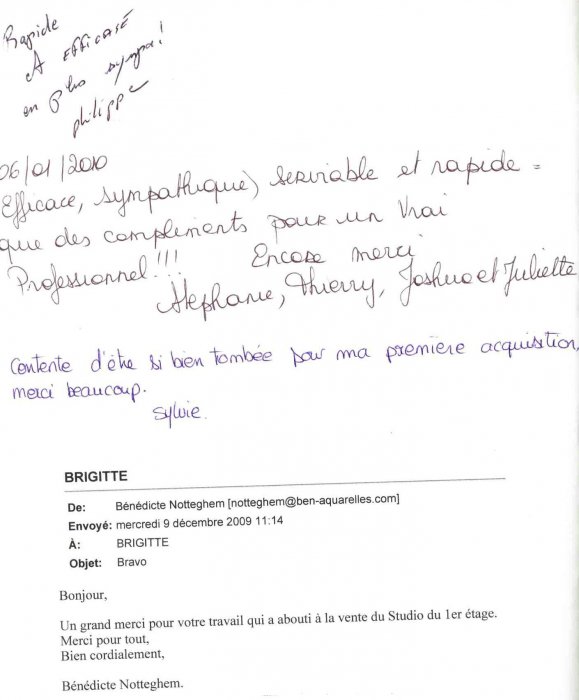 Rapide
A EFFICASÉ
en Plus sympa!
philippe
06/01/2010
Efficace, sympathique, serviable et rapide =
que des compliments pour un Vrai
Professionnel!!! Encore merci
Stephanie, Thierry, Joshua et Juliette
Contente d'être si bien tombée pour ma première acquisition,
merci beaucoup.
Sylvie.
BRIGITTE
De: Bénédicte Notteghem [notteghem@ben-aquarelles.com]
Envoyé: mercredi 9 décembre 2009 11:14
À: BRIGITTE
Objet: Bravo
Bonjour,
Un grand merci pour votre travail qui a abouti à la vente du Studio du 1er étage.
Merci pour tout,
Bien cordialement,
Bénédicte Notteghem.